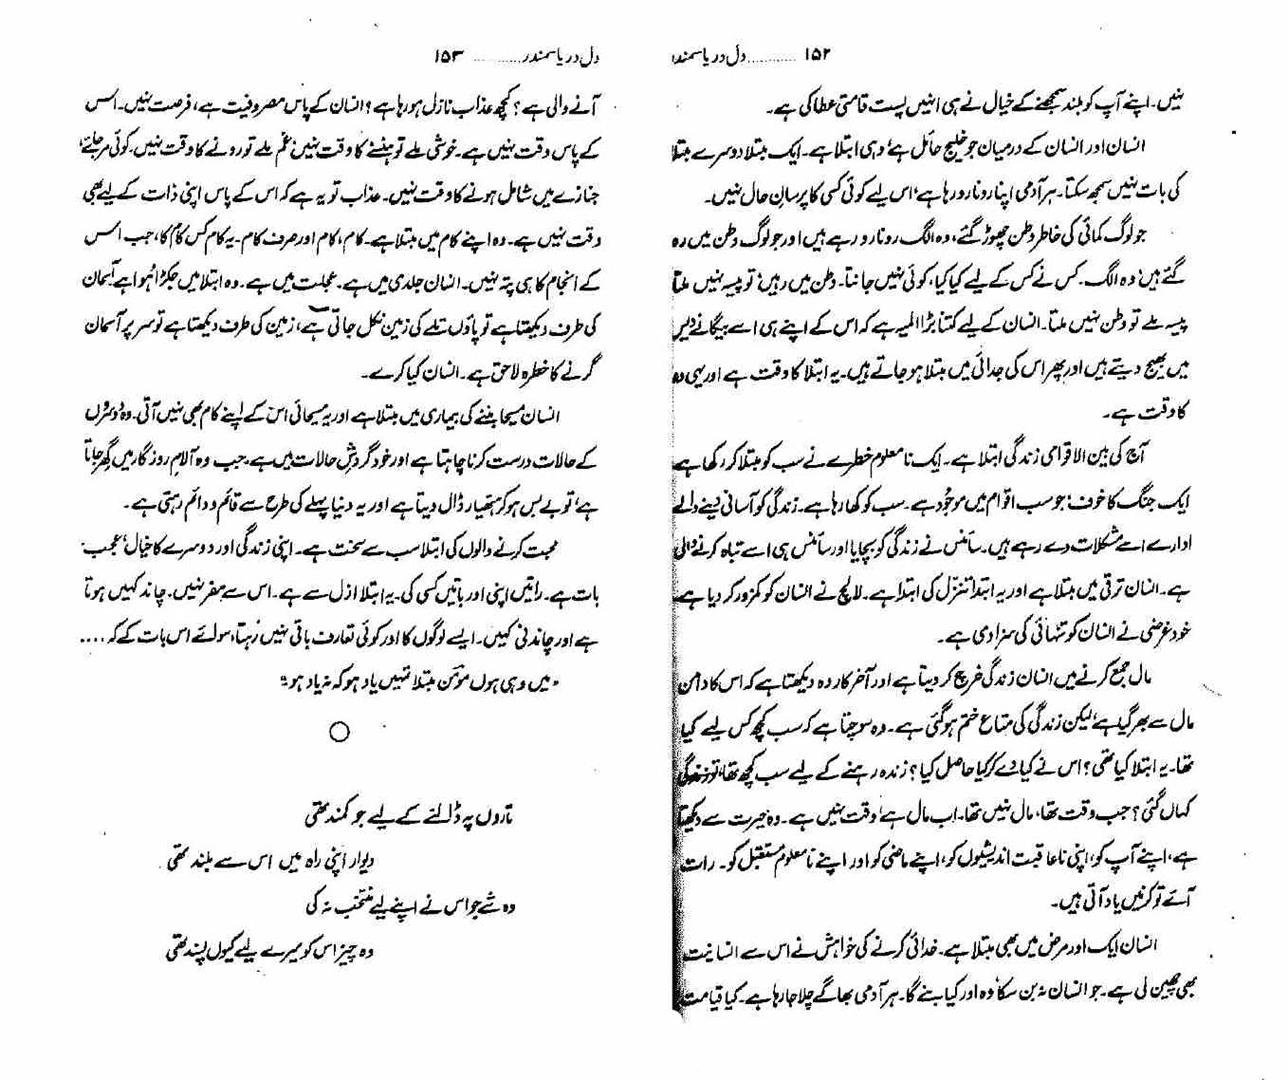 ۱۵۲ .......... دل دریا سمندر
نہیں۔ اپنے آپ کو بلند سمجھنے کے خیال نے ہی انہیں پست قامتی عطا کی ہے۔
انسان اور انسان کے درمیان جو خلیج حائل ہے، وہی ابتلا ہے۔ ایک مبتلا دوسرے مبتلا
کی بات نہیں سمجھ سکتا۔ ہر آدمی اپنا رونا رو رہا ہے، اس لیے کوئی کسی کا پرسانِ حال نہیں۔
جو لوگ کمائی کی خاطر وطن چھوڑ گئے، وہ الگ رونا رو رہے ہیں اور جو لوگ وطن میں رہ
گئے ہیں، وہ الگ۔ کس نے کس کے لیے کیا کیا، کوئی نہیں جانتا۔ وطن میں رہیں تو پیسہ نہیں ملتا
پیسہ ملے تو وطن نہیں ملتا۔ انسان کے لیے کتنا بڑا المیہ ہے کہ اس کے اپنے ہی اسے بیگانے دیس
میں بھیج دیتے ہیں اور پھر اس کی جدائی میں مبتلا ہو جاتے ہیں۔ یہ ابتلا کا وقت ہے اور یہی وہ
کا وقت ہے۔
آج کی بین الاقوامی زندگی ابتلا ہے۔ ایک نامعلوم خطرے نے سب کو مبتلا کر رکھا ہے
ایک جنگ کا خوف، جو سب اقوام میں موجود ہے۔ سب کو کھا رہا ہے۔ زندگی کو آسانی دینے والے
ادارے اسے مشکلات دے رہے ہیں۔ سائنس نے زندگی کو بچایا اور سائنس ہی اسے تباہ کرنے والی
ہے۔ انسان ترقی میں مبتلا ہے اور یہ ابتدا تنزل کی ابتدا ہے۔ لالچ نے انسان کو کمزور کر دیا ہے
خود غرضی نے انسان کو تنہائی کی سزا دی ہے۔
مال جمع کرنے میں انسان زندگی خرچ کر دیتا ہے اور آخر کار وہ دیکھتا ہے کہ اس کا دامن
مال سے بھر گیا ہے، لیکن زندگی کی متاع ختم ہو گئی ہے۔ وہ سوچتا ہے کہ سب کچھ کس لیے کیا
تھا۔ یہ ابتلا کیا تھی؟ اس نے کیا دے کر کیا حاصل کیا؟ زندہ رہنے کے لیے سب کچھ تھا، تو زندگی
کہاں گئی؟ جب وقت تھا، مال نہیں تھا۔ اب مال ہے، وقت نہیں ہے۔ وہ حیرت سے دیکھتا
ہے، اپنے آپ کو، اپنی ناعاقبت اندیشیوں کو، اپنے ماضی کو اور اپنے نامعلوم مستقبل کو۔ رات
آئے تو کرنیں یاد آتی ہیں۔
انسان ایک اور مرض میں بھی مبتلا ہے۔ خدائی کرنے کی خواہش نے اس سے انسانیت
بھی چھین لی ہے۔ جو انسان نہ بن سکا وہ اور کیا بنے گا۔ ہر آدمی بھاگے چلا جا رہا ہے۔ کیا قیامت
دل دریا سمندر .......... ۱۵۳
آنے والی ہے؟ کچھ عذاب نازل ہو رہا ہے؟ انسان کے پاس مصروفیت ہے، فرصت نہیں۔ اس
کے پاس وقت نہیں ہے۔ خوشی ملے تو ہنسنے کا وقت نہیں، غم ملے تو رونے کا وقت نہیں۔ کوئی مر جائے،
جنازے میں شامل ہونے کا وقت نہیں۔ عذاب تو یہ ہے کہ اس کے پاس اپنی ذات کے لیے بھی
وقت نہیں ہے۔ وہ اپنے کام میں مبتلا ہے۔ کام، کام اور صرف کام۔ یہ کام کس کام کا، جب اس
کے انجام کا ہی پتہ نہیں۔ انسان جلدی میں ہے۔ عجلت میں ہے۔ وہ ابتلا میں جکڑا ہوا ہے۔ آسمان
کی طرف دیکھتا ہے تو پاؤں تلے کی زمین نکل جاتی ہے، زمین کی طرف دیکھتا ہے تو سر پر آسمان
گرنے کا خطرہ لاحق ہے۔ انسان کیا کرے۔
انسان مسیحا بننے کی بیماری میں مبتلا ہے اور یہ مسیحائی اس کے اپنے کام بھی نہیں آتی۔ وہ دوسروں
کے حالات درست کرنا چاہتا ہے اور خود گردشِ حالات میں ہے۔ جب وہ آلامِ روزگار میں گھر جاتا
ہے، تو بے بس ہو کر ہتھیار ڈال دیتا ہے اور یہ دنیا پہلے کی طرح سے قائم و دائم رہتی ہے۔
محبت کرنے والوں کی ابتلا سب سے سخت ہے۔ اپنی زندگی اور دوسرے کا خیال، عجب
بات ہے۔ راتیں اپنی اور باتیں کسی کی۔ یہ ابتلا ازل سے ہے۔ اس سے مفر نہیں۔ چاند کہیں ہوتا
ہے اور چاندنی کہیں۔ ایسے لوگوں کا اور کوئی تعارف باقی نہیں رہتا، سوائے اس بات کے کہ ....
"میں وہی ہوں مومن مبتلا تمہیں یاد ہو کہ نہ یاد ہو"
تاروں پہ ڈالنے کے لیے جو کمند تھی
دیوار اپنی راہ میں اس سے بلند تھی
وہ شے جو اس نے اپنے لیے منتخب نہ کی
وہ چیز اس کو میرے لیے کیوں پسند تھی